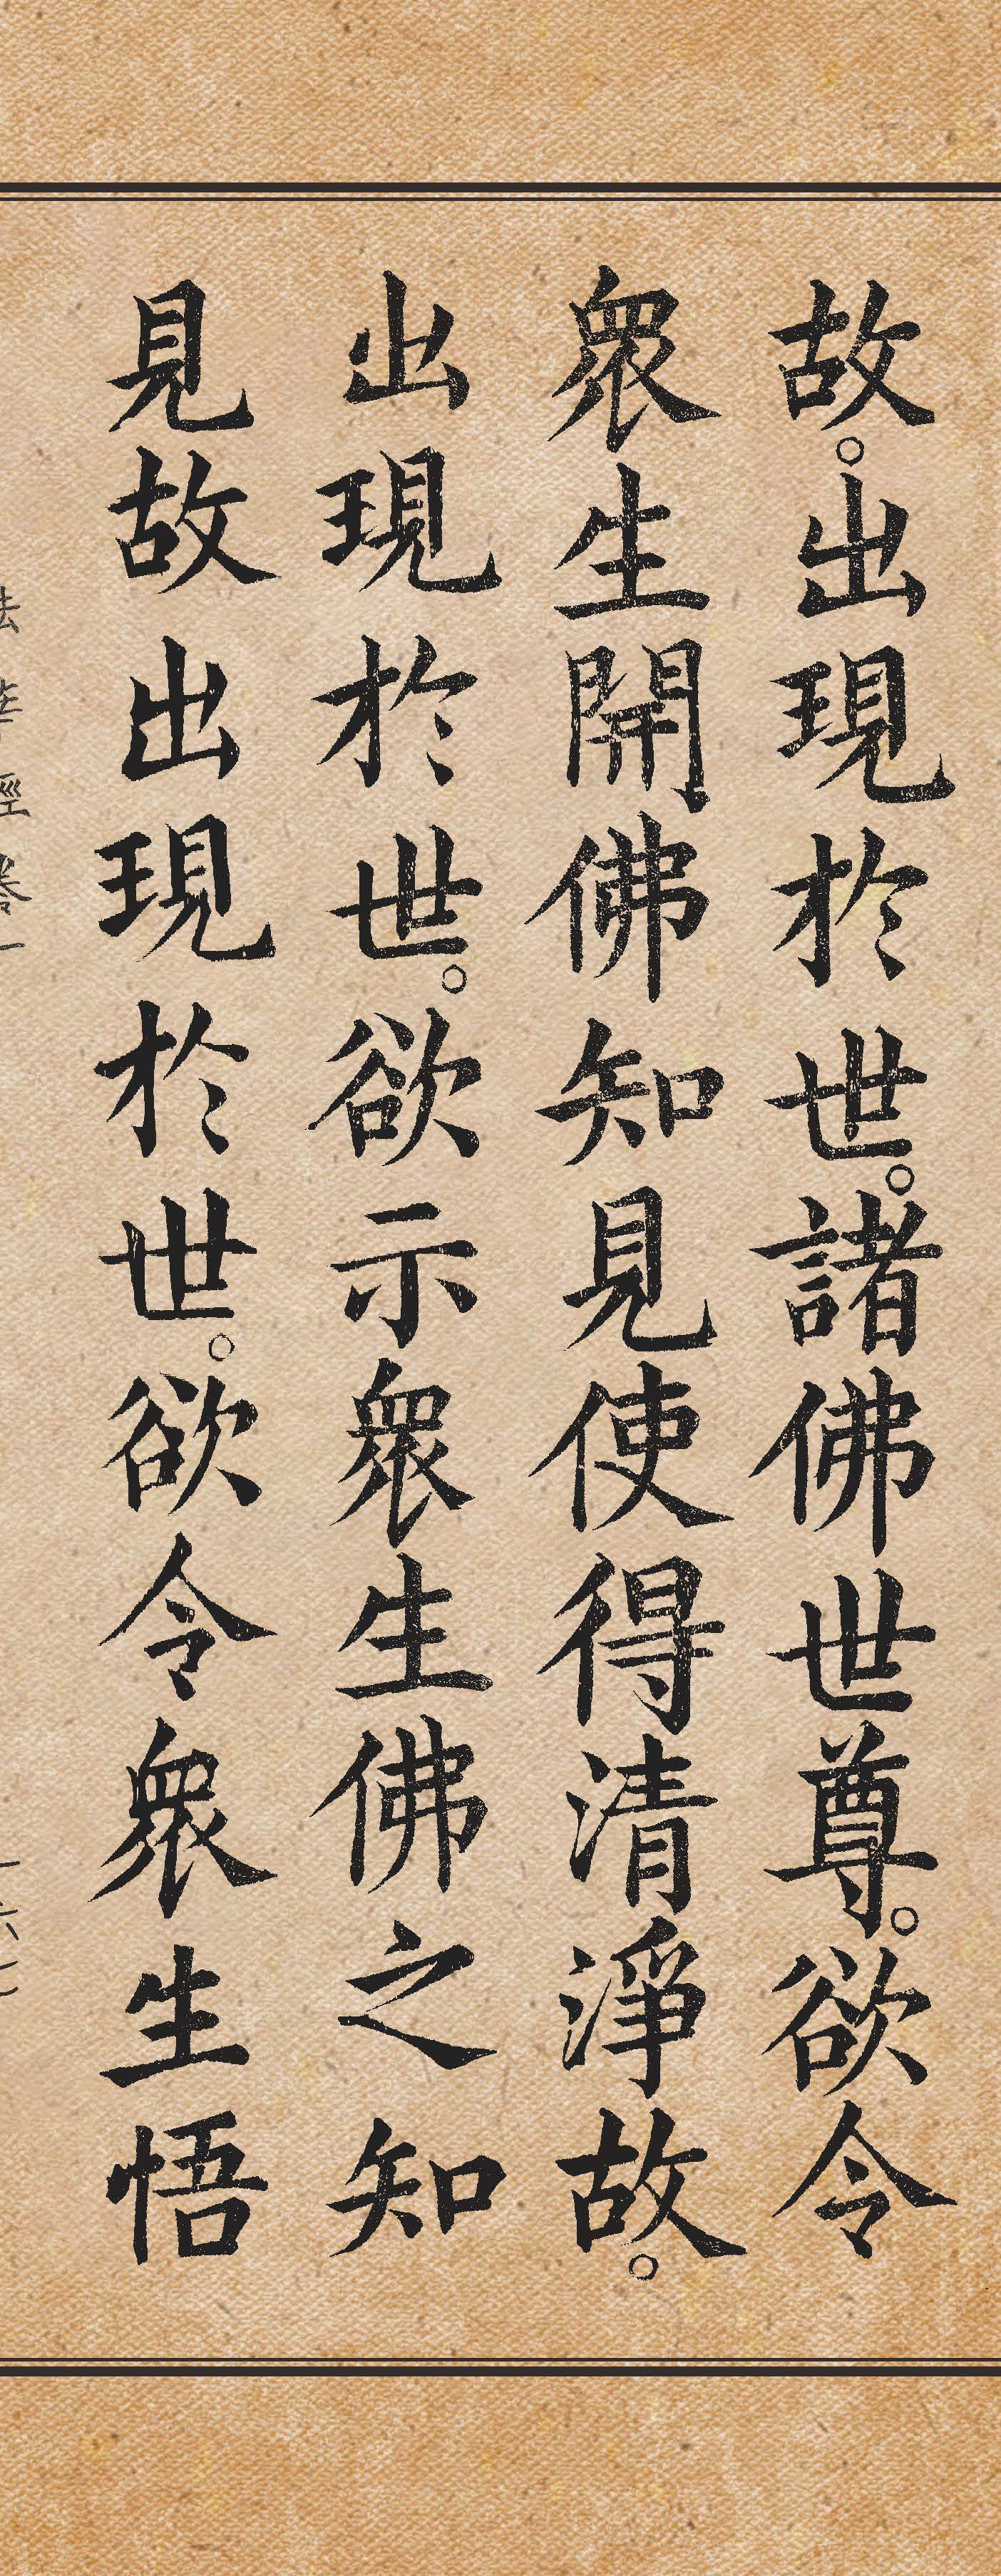 故。出現於世。諸佛世尊。欲令
衆生開佛知見使得清淨故。
出現於世。欲示衆生佛之知
見故出現於世。欲令衆生悟
法華經卷一
一六七